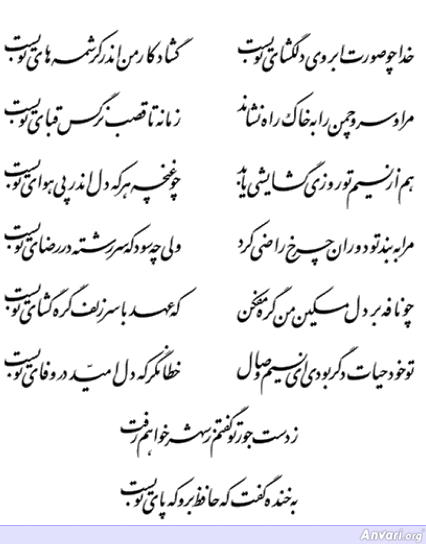 خدا چو صورت ابروی دلگشای تو بست گشاد کار من اندر کرشمه های تو بست
مرا و سرو چمن را به خاک راه نشاند زمانه تا قصب نرگس قبای تو بست
هم از نسیم تو روزی گشایشی یابد چو غنچه هر که دل اندر پی هوای تو بست
مرا به بند تو دوران چرخ راضی کرد ولی چه سود که سررشته در رضای تو بست
چو نافه بر دل مسکین من گره مفکن که عهد با سر زلف گره گشای تو بست
تو خود حیات دگر بودی ای نسیم وصال خطا نگر که دل امید در وفای تو بست
ز دست جور تو گفتم ز شهر خواهم رفت
به خنده گفت که حافظ برو که پای تو بست
Anvari.org